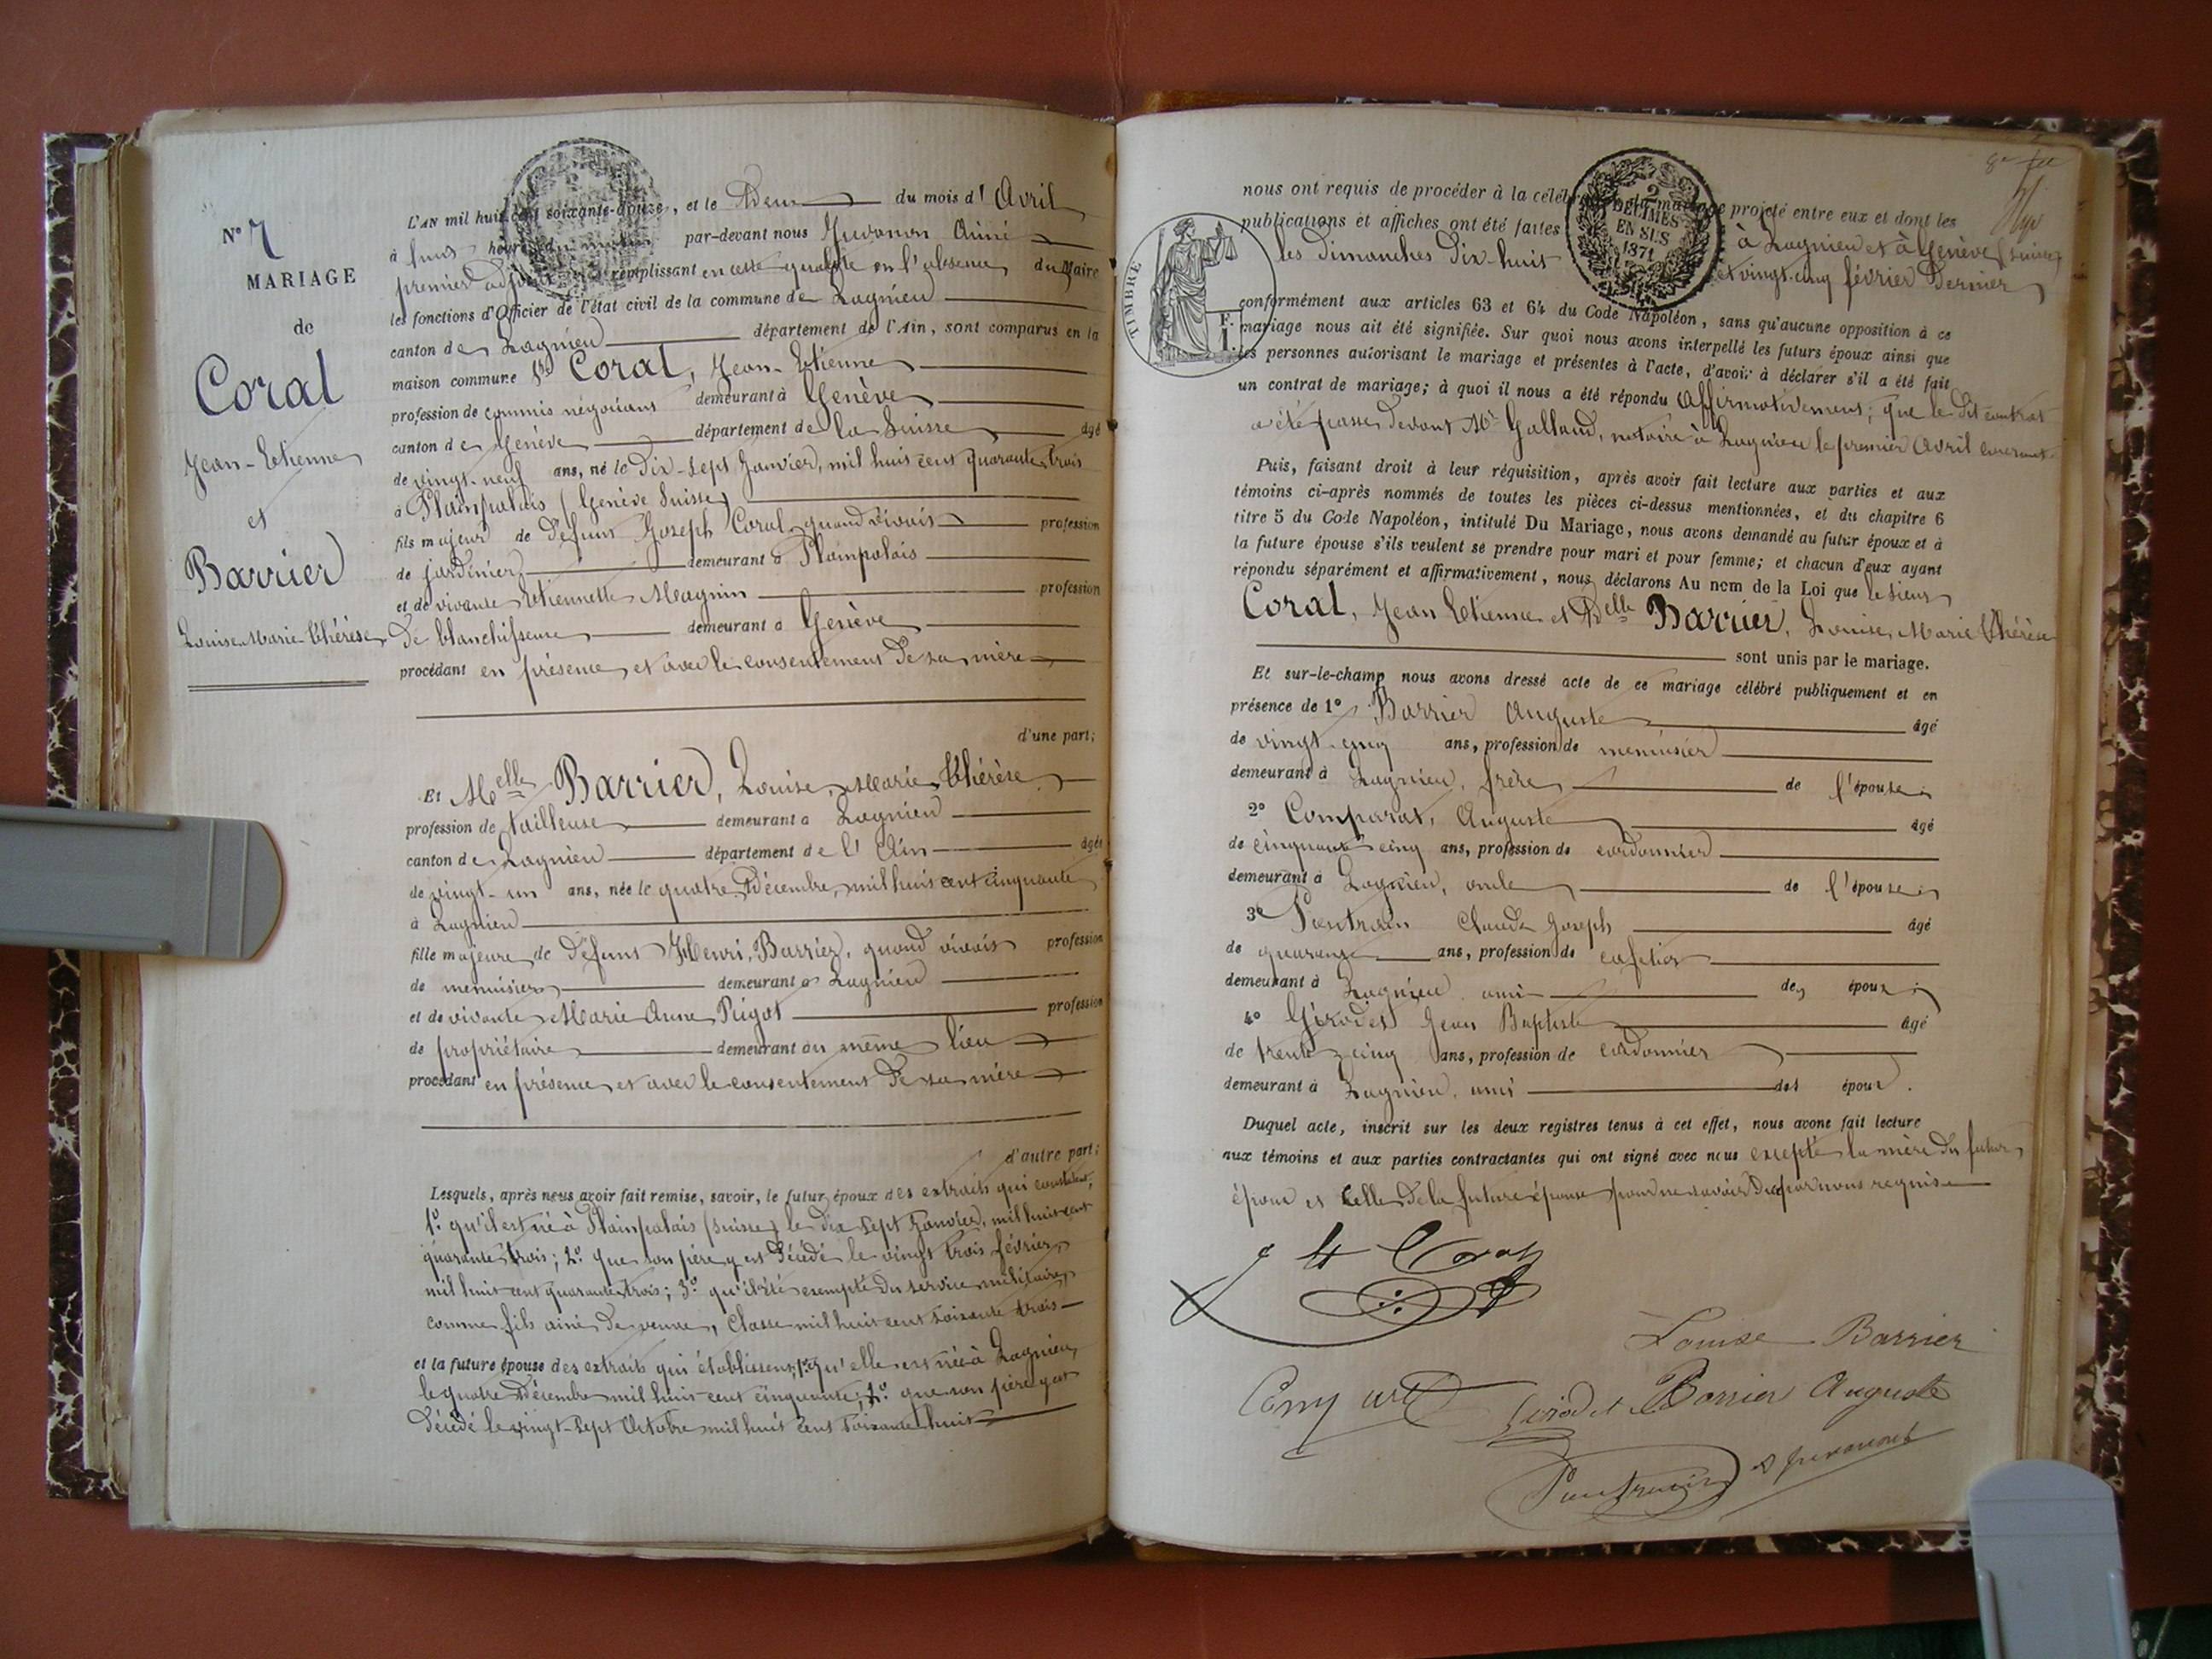 N° 7
MARIAGE
de
Coral
Jean-Etienne
et
Barrier
Louise Marie Thérèse
L'AN mil huit cent soixante-douze, et le Deux du mois d' Avril
à heures du matin par-devant nous Juvanon Aimé
premier adjoint remplissant en cette qualité en l'absence du Maire
les fonctions d'Officier de l'état civil de la commune de Lagnieu
canton de Lagnieu département de l'Ain, sont comparus en la
maison commune Sr. Coral, Jean-Etienne
profession de commis négociant demeurant à Genève
canton de Genève département de la Suisse âgé
de vingt-neuf ans, né le Dix-sept Janvier, mil huit cent quarante trois
à Plainpalais (Genève Suisse)
fils majeur de Défunt Joseph Coral quand vivait profession
de jardinier demeurant à Plainpalais
et de vivante Etiennette Magnin profession
de blanchisseuse demeurant à Genève
procédant en présence et avec le consentement de sa mère
d'une part;
Et Melle Barrier, Louise, Marie Thérèse
profession de tailleuse demeurant à Lagnieu
canton de Lagnieu département de l'Ain âgée
de vingt-un ans, née le quatre Décembre, mil huit cent cinquante
à Lagnieu
fille majeure de défunt Henri, Barrier, quand vivait profession
de menuisier demeurant à Lagnieu
et de vivante Marie Anne Pigot profession
de propriétaire demeurant au même lieu
procédant en présence et avec le consentement de sa mère
d'autre part;
Lesquels, après nous avoir fait remise, savoir, le futur époux des extraits qui constatent;
1° qu'il est né à Plainpalais (Suisse) le dix sept Janvier, mil huit cent
quarante trois; 2° que son père y est décédé le vingt trois février
mil huit cent quarante trois; 3° qu'il été exempté du service militaire,
comme fils ainé de veuve, Classe mil huit cent soixante trois
et la future épouse des extraits qui établissent; 1° qu'elle est née à Lagnieu,
le quatre Décembre mil huit cent cinquante; 2° que son père y est
décédé le vingt-sept Octobre mil huit cent soixante huit
nous ont requis de procéder à la célébration du mariage projeté entre eux et dont les
publications et affiches ont été faites à Lagnieu et à Genève (Suisse)
les dimanches Dix-huit et vingt-cinq février Dernier
2
DÉCIMES
EN SUS
1871
TIMBRE
F.
1.
conformément aux articles 63 et 64 du Code Napoléon, sans qu'aucune opposition à ce
mariage nous ait été signifiée. Sur quoi nous avons interpellé les futurs époux ainsi que
les personnes autorisant le mariage et présentes à l'acte, d'avoir à déclarer s'il a été fait
un contrat de mariage; à quoi il nous a été répondu Affirmativement; que le dit contrat
a été passé devant Me Galland, notaire à Lagnieu le premier Avril courant.
Puis, faisant droit à leur réquisition, après avoir fait lecture aux parties et aux
témoins ci-après nommés de toutes les pièces ci-dessus mentionnées, et du chapitre 6
titre 5 du Code Napoléon, intitulé Du Mariage, nous avons demandé au futur époux et à
la future épouse s'ils veulent se prendre pour mari et pour femme; et chacun d'eux ayant
répondu séparément et affirmativement, nous déclarons Au nom de la Loi que le Sieur
Coral, Jean Etienne et Delle Barrier, Louise, Marie Thérèse
sont unis par le mariage.
Et sur-le-champ nous avons dressé acte de ce mariage célébré publiquement et en
présence de 1° Barrier Auguste âgé
de vingt-cinq ans, profession de menuisier
demeurant à Lagnieu, frère de l'épouse;
2° Comparat, Auguste âgé
de cinquante cinq ans, profession de cordonnier
demeurant à Lagnieu, oncle de l'épouse;
3° Pautrain Claude Joseph âgé
de quarante ans, profession de cafetier
demeurant à Lagnieu ami des époux;
4° Girodet Jean Baptiste âgé
de trente cinq ans, profession de cordonnier
demeurant à Lagnieu, ami des époux.
Duquel acte, inscrit sur les deux registres tenus à cet effet, nous avons fait lecture
aux témoins et aux parties contractantes qui ont signé avec nous excepté la mère du futur
époux et celle de la future épouse pour ne savoir De par nous requise
Coral
Louise Barrier
Girodet Barrier Auguste
Pautrain Juvanon